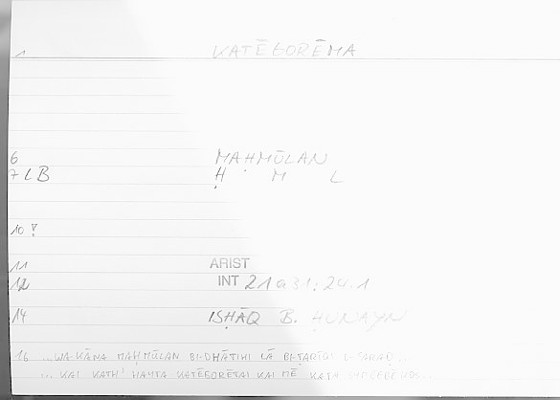 1 KATĒGORĒMA
6 MAḤMŪLAN
7 LB Ḥ M L
10 ?
11 ARIST
12 INT 21a31; 24.1
14 ISḤĀQ B. ḤUNAYN
16 ... WA-KĀNA MAḤMŪLAN BI-DHĀTIHI LĀ BI-ṬARĪQI
... KAI KATH' HAUTA KATĒGORĒTAI KAI MĒ KATA